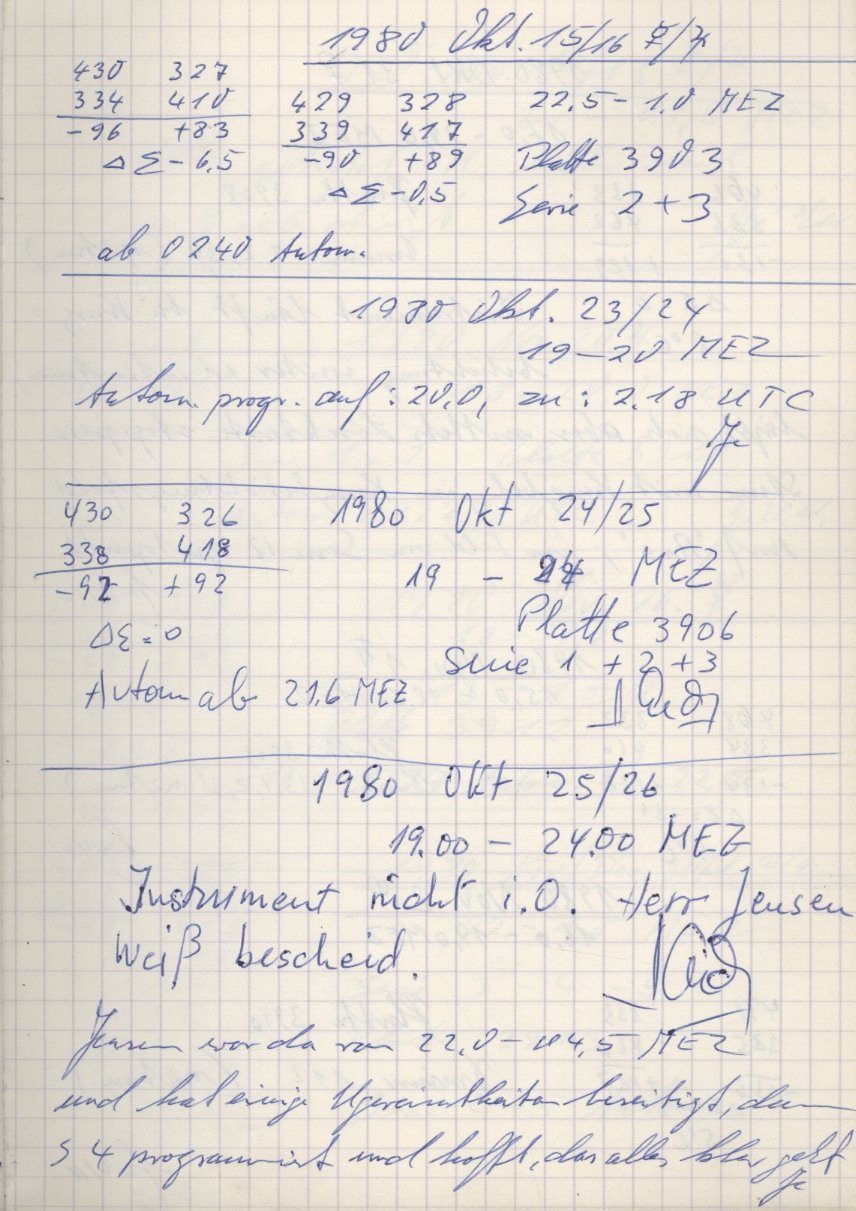 1980 Okt. 15/16 ☿/♃
430 327
334 410 429 328 22.5 - 1.0 MEZ
-96 +83 339 417
ΔΣ - 6,5 -90 +89 Platte 3903
ΔΣ - 0,5 Serie 2 + 3
ab 0240 Autom.
1980 Okt. 23/24
19 - 20 MEZ
Autom. progr. auf: 20.0, zu: 2.18 UTC
Je
430 326 1980 Okt 24/25
338 418 19 - 24 MEZ
-92 +92
Platte 3906
ΔΣ = 0
Serie 1 + 2 + 3
Autom ab 21,6 MEZ
1980 Okt 25/26
19.00 - 24.00 MEZ
Instrument nicht i.O. Herr Jensen
weiß bescheid.
Jensen war da von 22,0 - 4,5 MEZ
und hat einige Ugereimtheiten beseitigt, dann
S 4 programmiert und hofft, das alles klar geht
Je